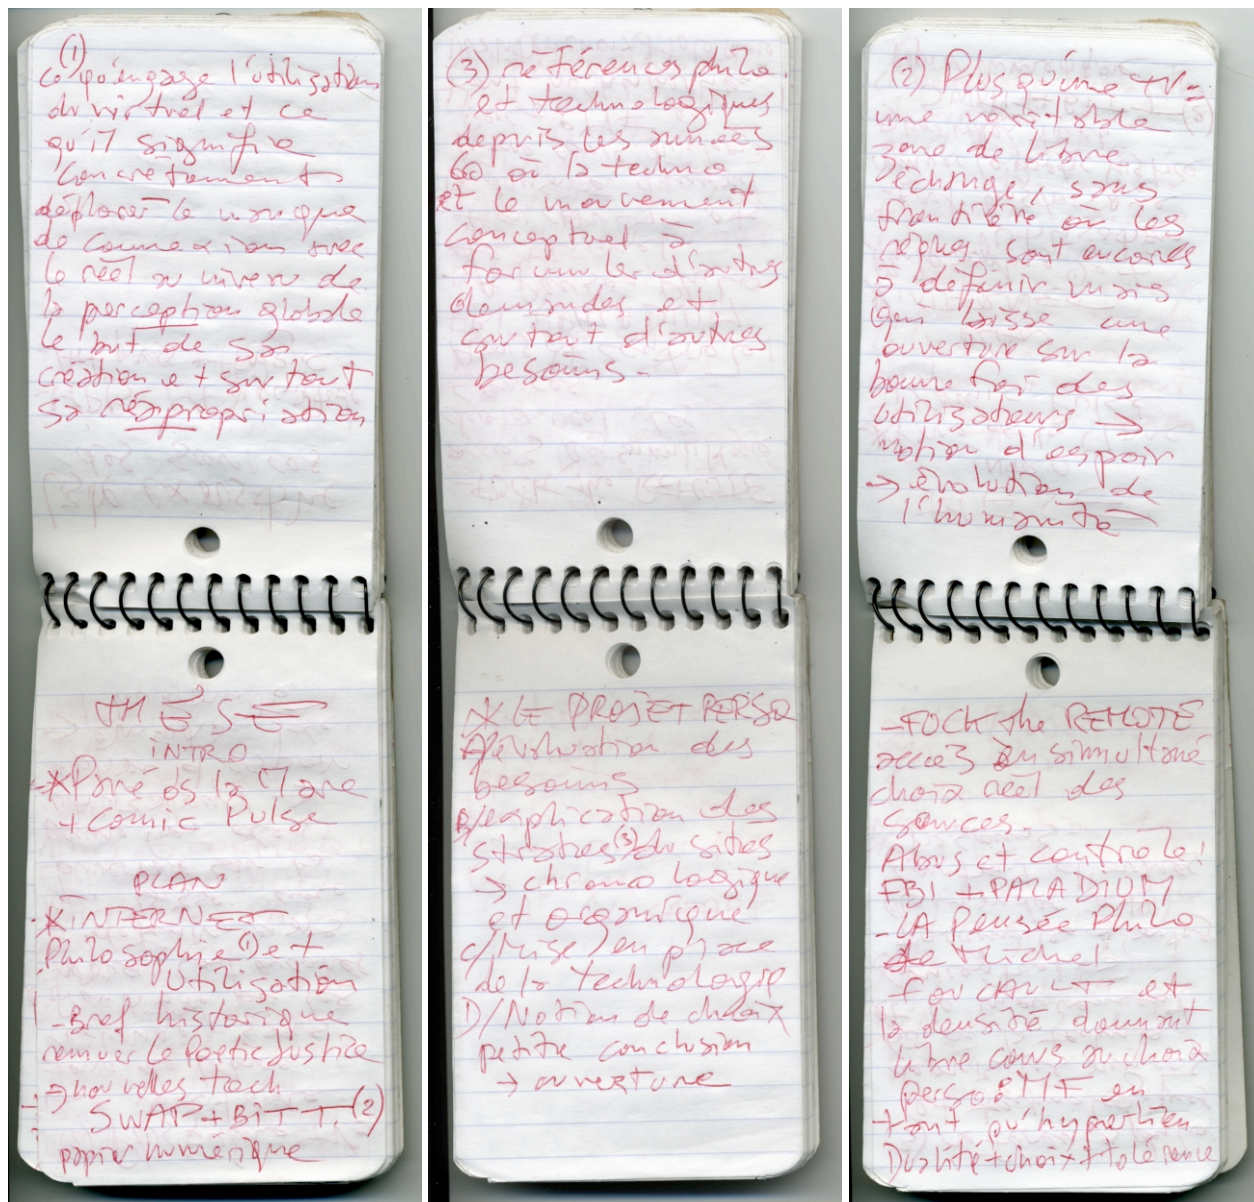 (1)
ce qu'engage l'utilisation
du virtuel et ce
qu'il signifie
concrètement
déplorer le manque
de connexion avec
le réel au niveau de
la perception globale
le but de sa
création et surtout
sa réapropriation
THÈSE
INTRO
+ Comic Pulse
PLAN
* INTERNET
Philosophie (1) et
Utilisation
- Bref historique
le Poetic Justice
→ nouvelles tech
SWAP + BITT. (2)
papier numérique
(3) références philo.
et technologiques
depuis les années
60 où la techno
et le mouvement
conceptuel à
formuler d'autres
demandes et
surtout d'autres
besoins.
* LE PROJET PERSO
A/évaluation des
besoins
B/explication des
strates (3) du sites
→ chronologique
et organique
C/Mise en place
de la technologie
D/Notion de choix
petite conclusion
→ ouverture
(2) Plus qu'une TV =
une véritable
zone de libre
échange, sans
frontière où les
règles sont encores
à définir mais
qui laisse une
ouverture sur la
bonne foi des
utilisateurs →
notion d'espoir
→ évolution de
l'humanité
- FUCK the REMOTE
accès en simultané
choix réel des
sources.
Abus et contrôle:
FBI + PALADIUM
- LA Pensée Philo
de Michel
FOUCAULT et
la densité donnant
libre cours au choix
perso: MF en
tant qu'hyperlien
Dualité + choix + tolérance